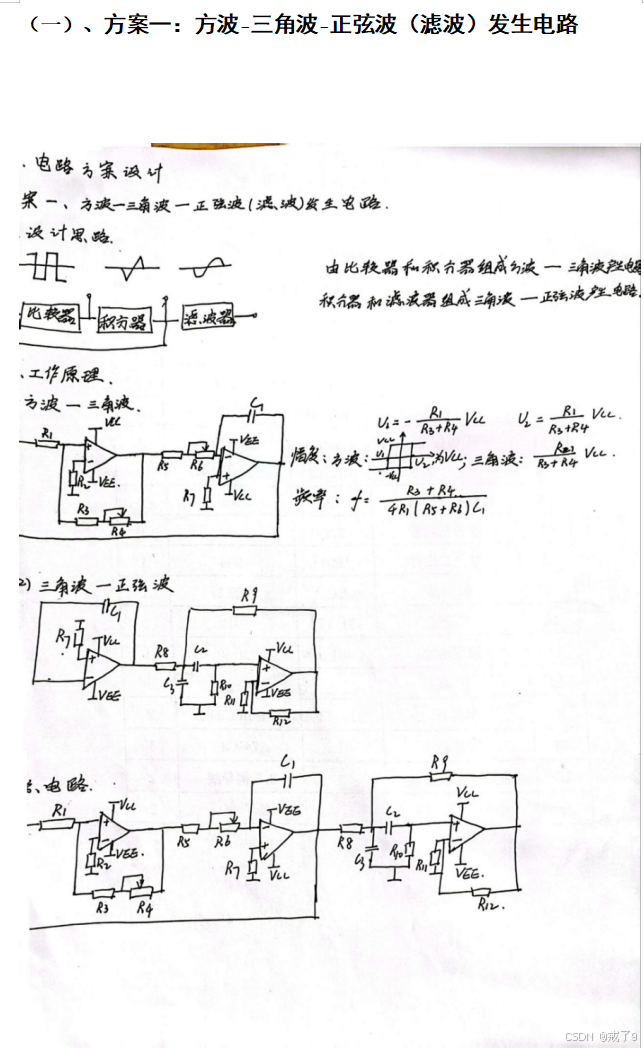 （一）、方案一：方波-三角波-正弦波（滤波）发生电路
.电路方案设计
案一、方波一三角波一正弦波(滤波)发生电路.
设计思路.
由比较器和积分器组成方波一三角波产生电路
比较器 积分器 滤波器
积分器和滤波器组成三角波一正弦波产生电路.
.工作原理.
方波一三角波.
R1 VCC R2 VEE. R3 R4 R5 R6 C1 VEE R7 VCC
U1=-R1/(R3+R4) VCC U2=R1/(R3+R4) VCC.
幅度:方波: VCC U1 U2 为VCC; 三角波: /(R3+R4) VCC.
频率: f=(R3+R4)/(4R1(R5+R6)C1)
2) 三角波一正弦波
C1 R7 VCC VEE R8 C2 C3 R9 R10 R11 VCC VEE R12
电路.
R1 VCC R2 VEE. R3 R4 R5 R6 C1 VEE R7 VCC R8 C2 C3 R9 R10 R11 VCC VEE. R12.
CSDN @戒了9